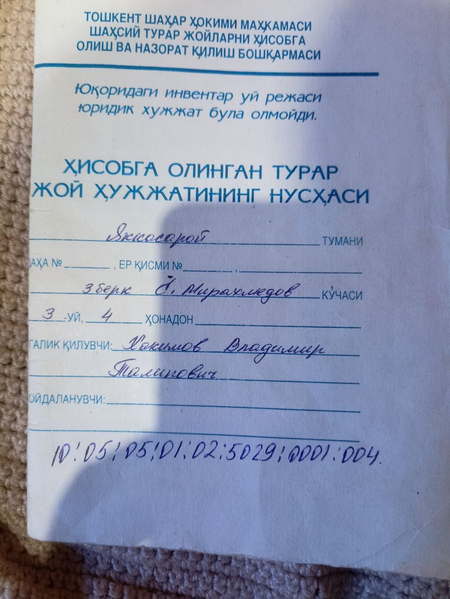 ТОШКЕНТ ШАҲАР ҲОКИМИ МАҲКАМАСИ
ШАҲСИЙ ТУРАР ЖОЙЛАРНИ ҲИСОБГА
ОЛИШ ВА НАЗОРАТ ҚИЛИШ БОШҚАРМАСИ
Юқоридаги инвентар уй режаси
юридик хужжат була олмойди.
ҲИСОБГА ОЛИНГАН ТУРАР
ЖОЙ ҲУЖЖАТИНИНГ НУСҲАСИ
Яккосарой ТУМАНИ
ДАҲА № , ЕР ҚИСМИ № ,
3 берк Мирахмедов КӮЧАСИ
3 -УЙ, 4 ҲОНАДОН
ГАЛИК ҚИЛУВЧИ: Хокимов Владимир
Талипович
ОЙДАЛАНУВЧИ:
10:05:05:01:02:5029:0001:004.